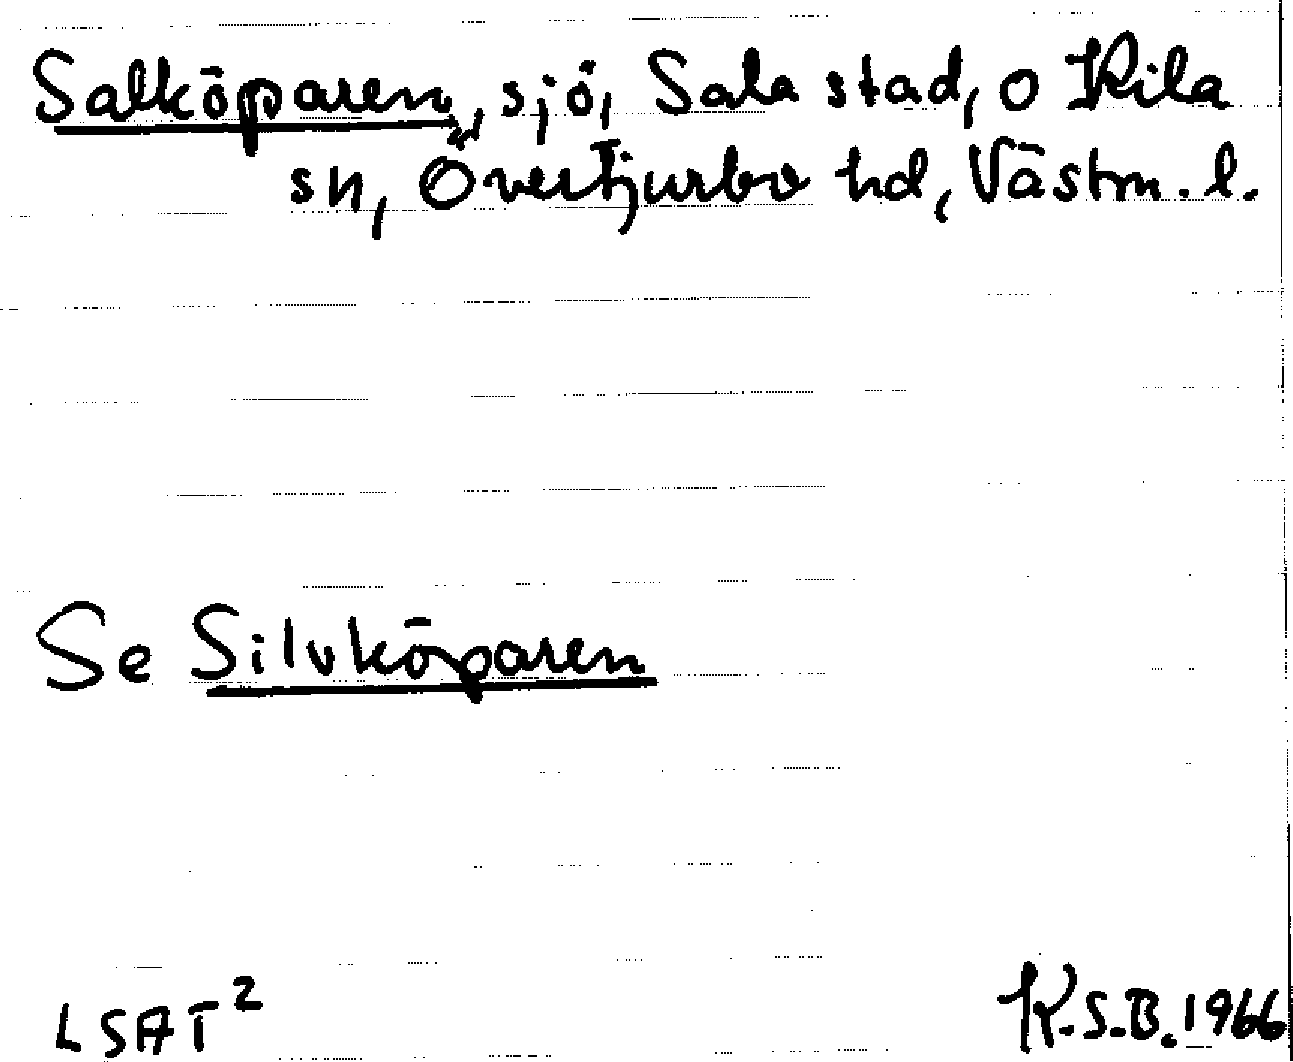 Salköparen, sjö, Sala stad, o Kila
sn, Övertjurbo hd, Västm. l.
Se Silvköparen
LSAT²
K.S.B. 1966